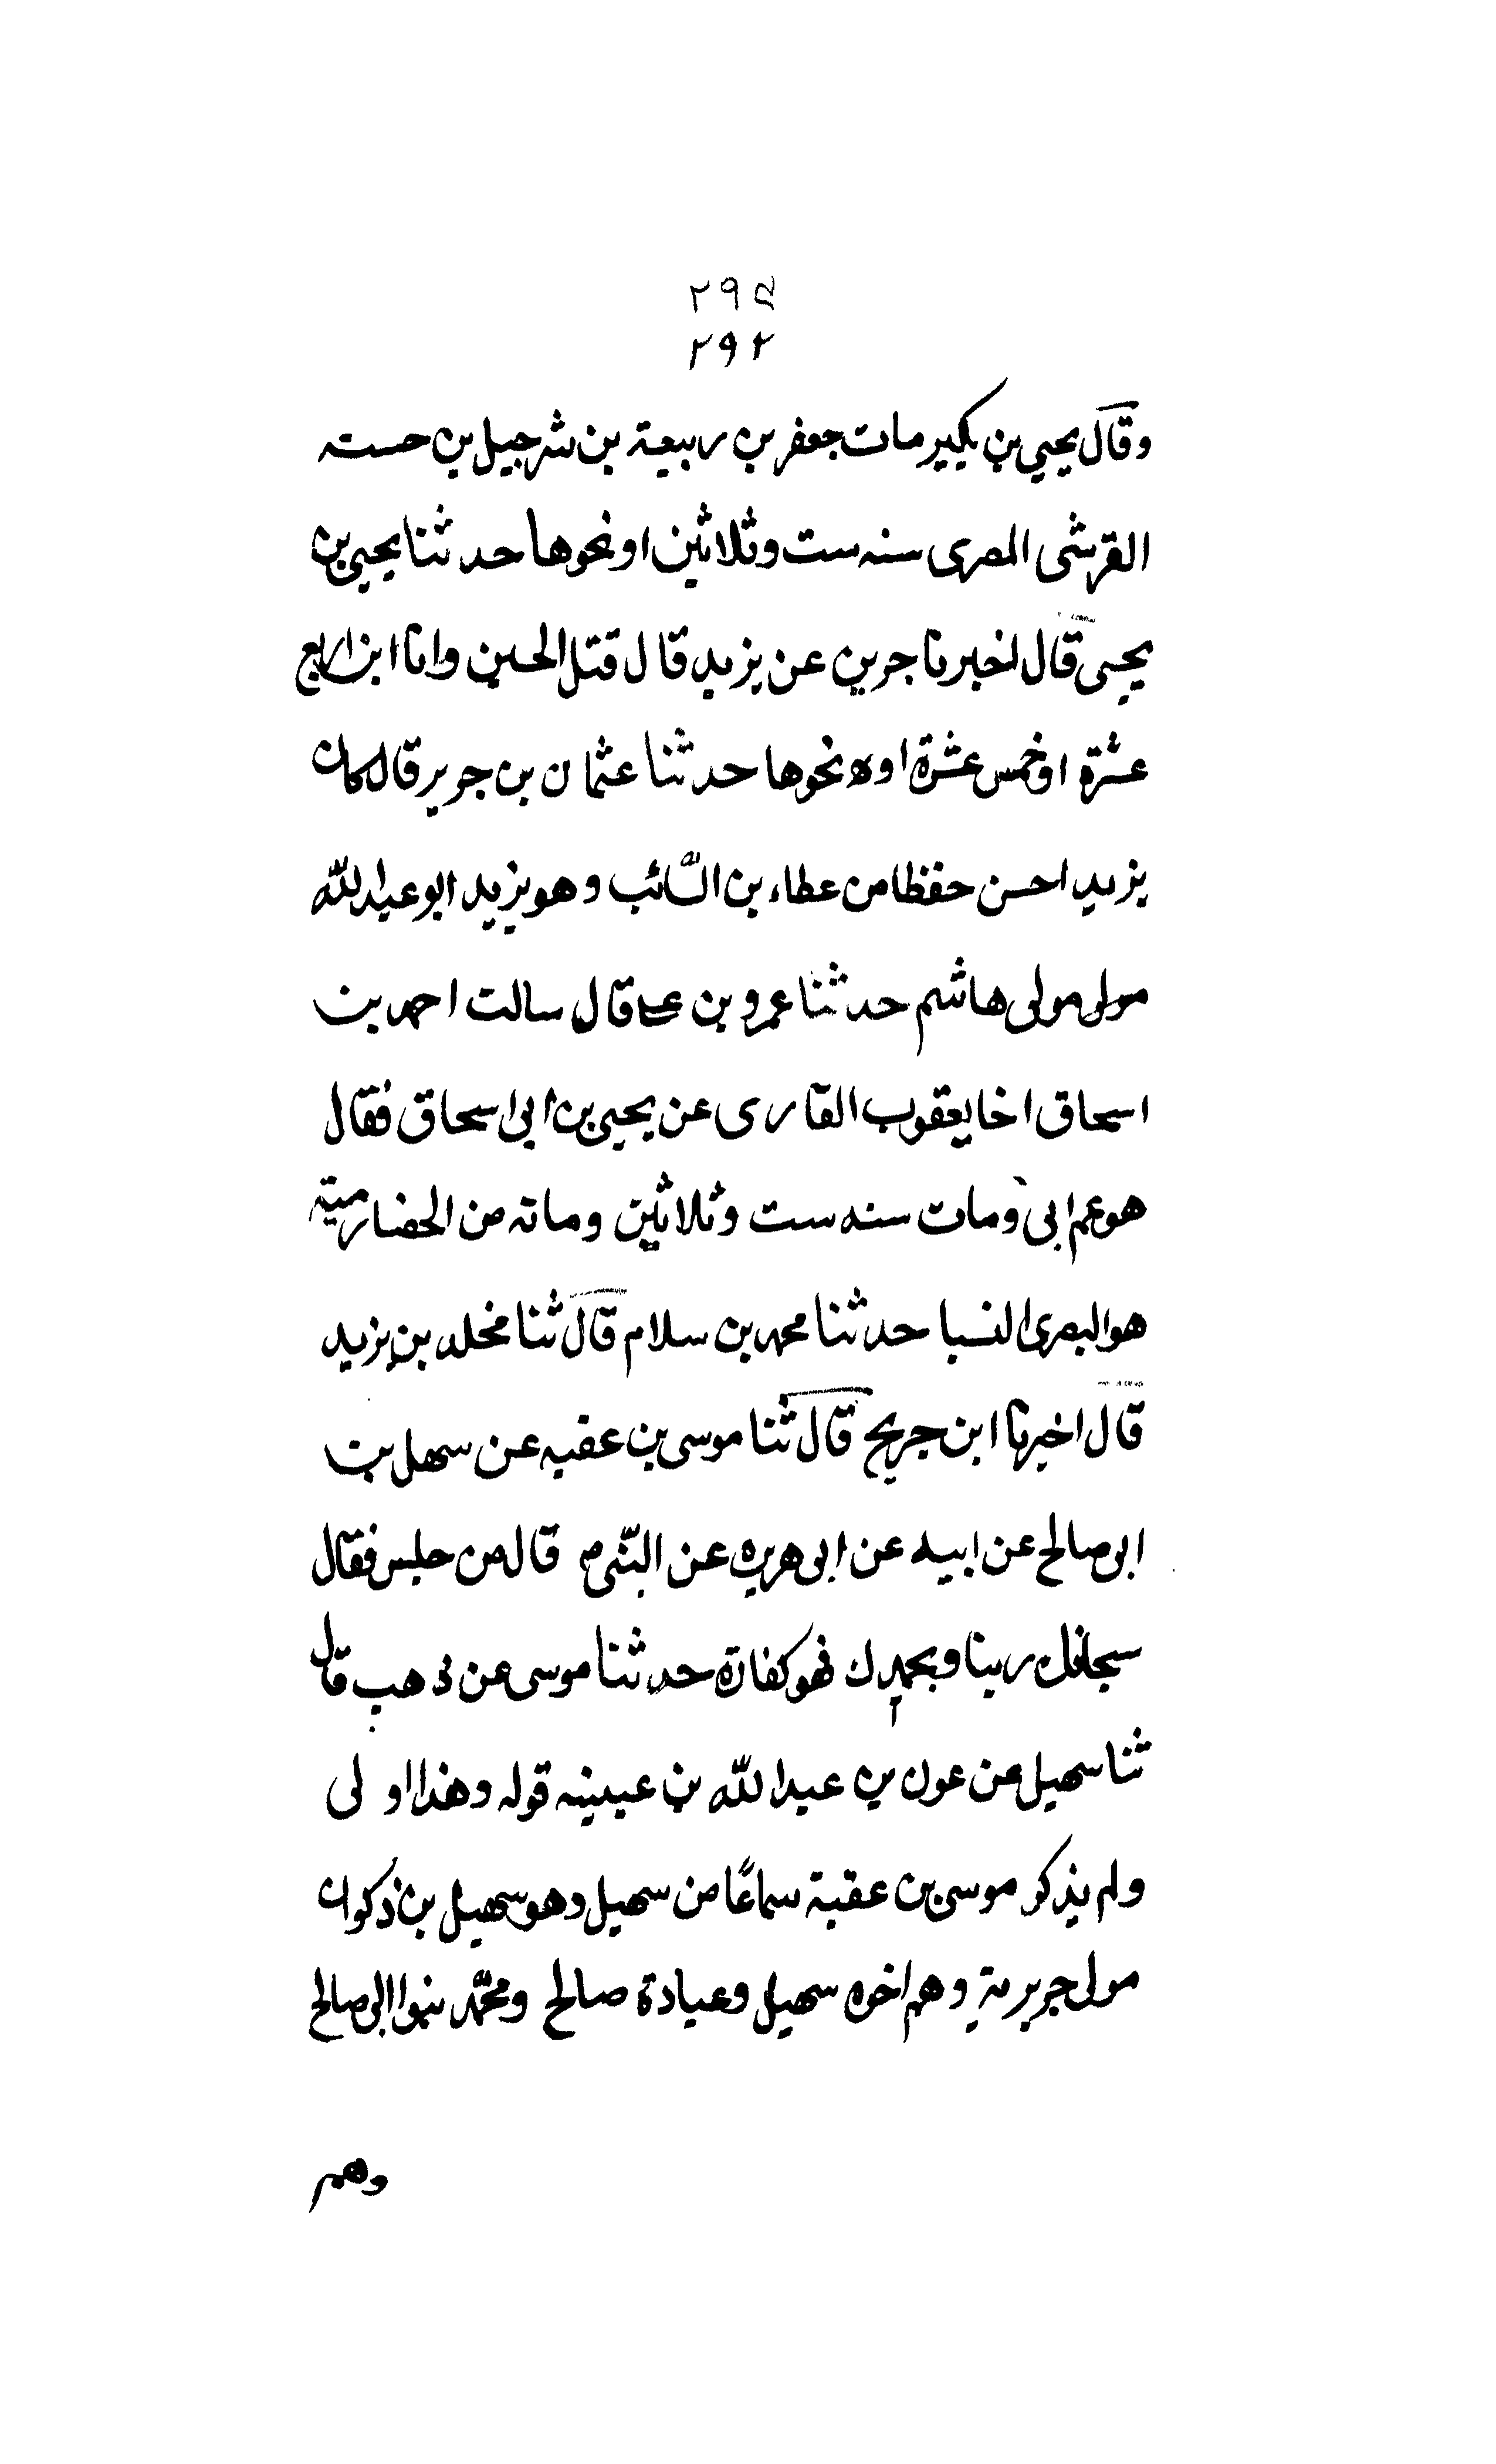 ٢٩٥
٢٩٢
وقال يحيى بن بكير مات جعفر بن ربيعة بن شرجيل بن حسنه
القرشى المصرى سنه ست وثلاثين او نحوها حدثنا يحيى بن
يحيى قال اخبرنا جرير عن يزيد قال قتل الحسين وانا ابن اربع
عشرة او خمس عشرة او نحوها حدثنا عثمان بن جرير قال كان
يزيد احسن حفظا من عطاء بن السائب وهو يزيد ابو عبد الله
مولى هاشم حدثنا عمرو بن قال سالت احمد بن
اسحاق اخا يعقوب القارى عن يحيى بن ابى اسحاق فقال
هو عم ابى ومات سنه ست وثلاثين ومائه من الحضارمية
هو البصرى النسبا حدثنا محمد بن سلام قال ثنا مخلد بن يزيد
قال اخبرنا ابن جريج قال ثنا موسى بن عقبه عن سهل بن
ابى صالح عن ابيه عن ابى هريره عن النبى م قال من جلس فقال
سبحانك ربنا وبحمدك فهو كفارة حدثنا موسى عن وهب قال
ثنا سهيل عن عون بن عبد الله بن عيينه قوله وهذا اولى
ولم يذكر موسى بن عقبة سماعًا من سهيل وهو سهيل بن ذكوان
مولى جويرية وهم اخوه سهيل وعبادة صالح ومحمّد بنوا ابى صالح
وهم